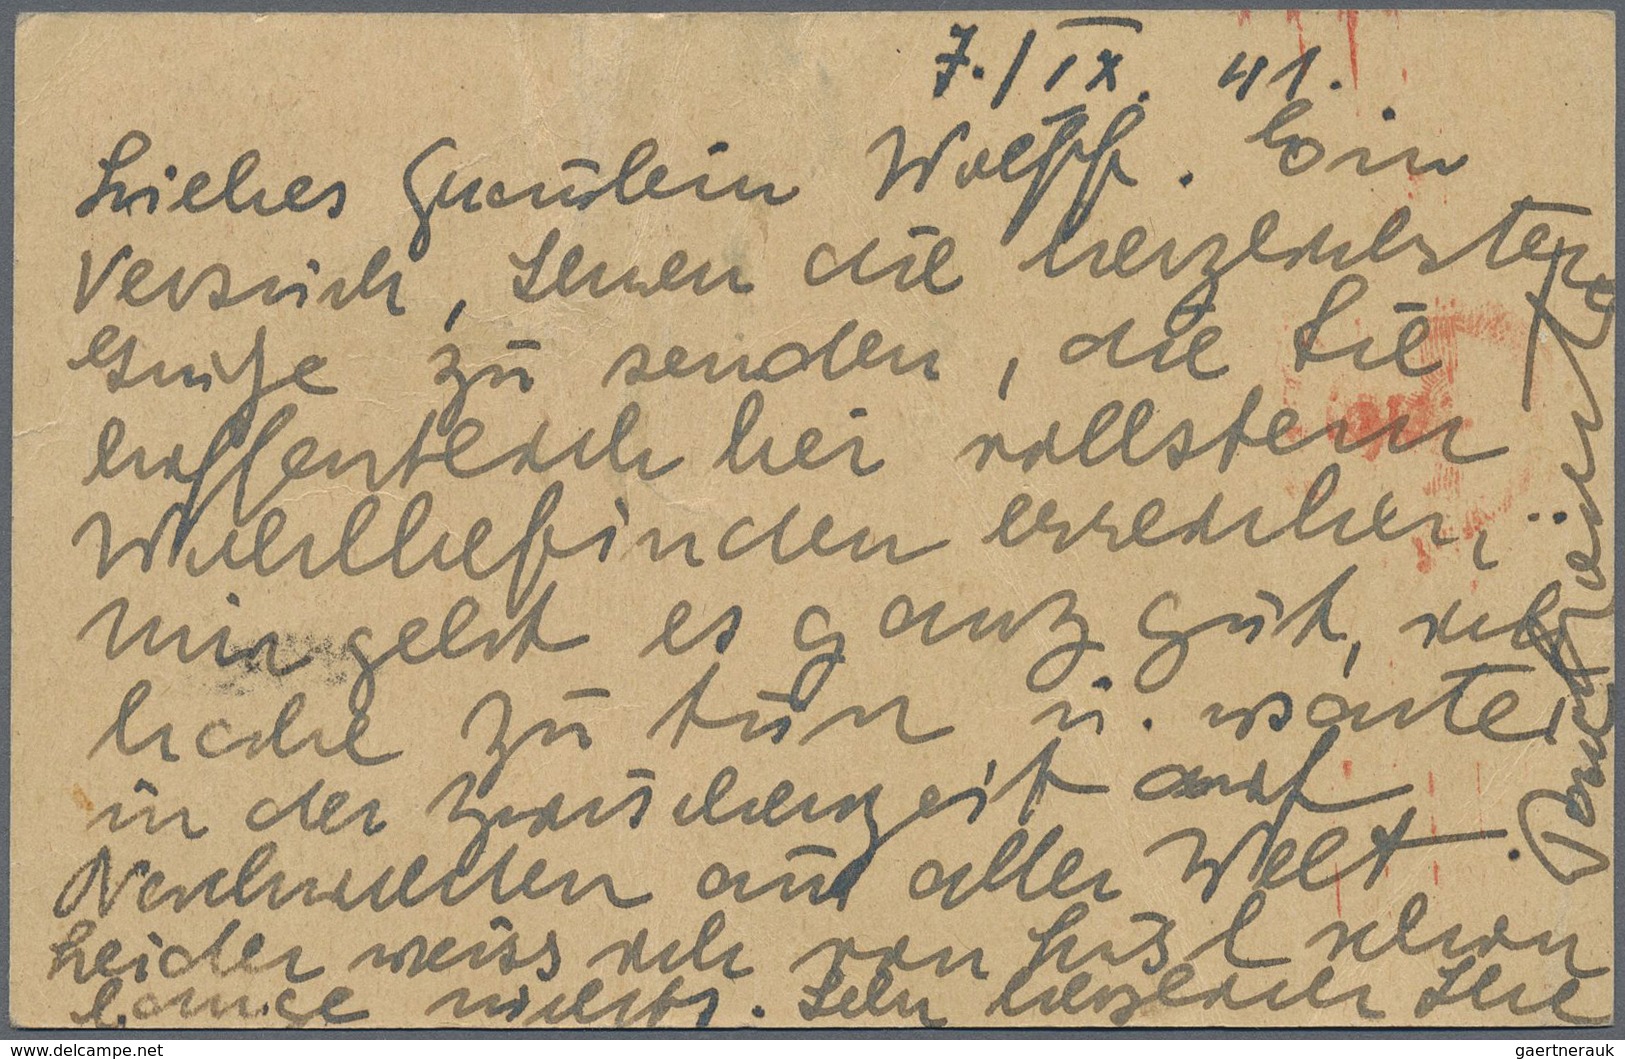 7./IX. 41.
Liebes Fräulein Wolff. Ein
Versuch, Ihnen die herzlichsten
Grüße zu senden, die Sie
hoffentlich bei vollstem
Wohlbefinden erreichen,..
mir geht es ganz gut, ich
habe zu tun u. warte
in der Zwischenzeit auf
Nachrichten aus aller Welt.
Leider weiss ich von schon
lange nichts. Sehr herzlich Ihr
www.delcampe.net
gaertnerauk